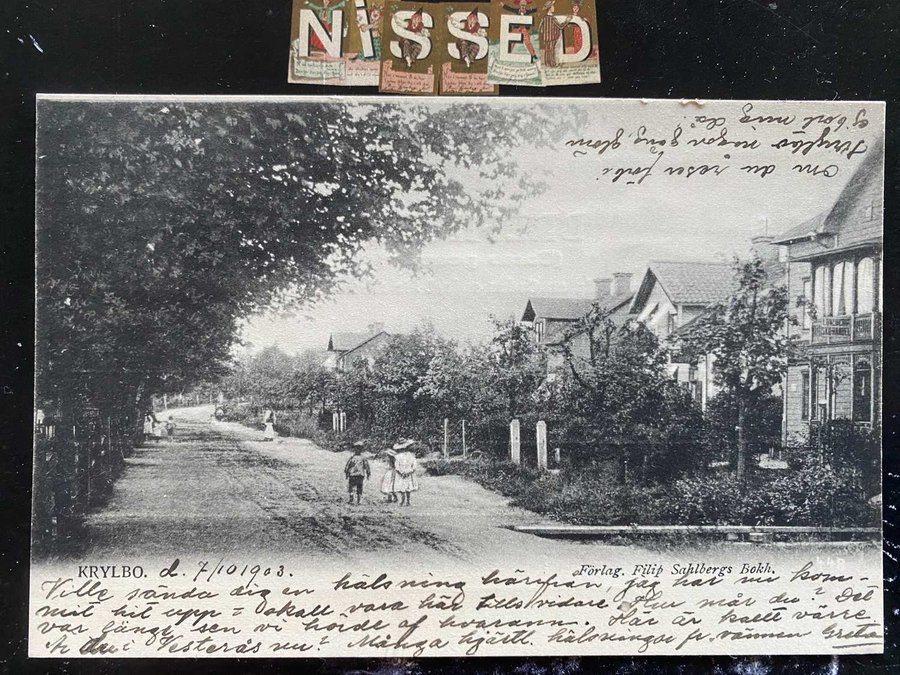 NISSED
Om du reser förbi
Krylbo någon gång, glöm
ej bort mig då
KRYLBO. d. 7/10 1903.
Förlag. Filip Sahlbergs Bokh.
Ville sända dig en hälsning härifrån, jag har nu kom-
mit hit upp = skall vara här tills vidare. Hur mår du? Det
var länge sen vi hörde af hvarann. Här är kallt värre
Är du i Vesterås nu? Många hjärtl. hälsningar fr. vännen Greta